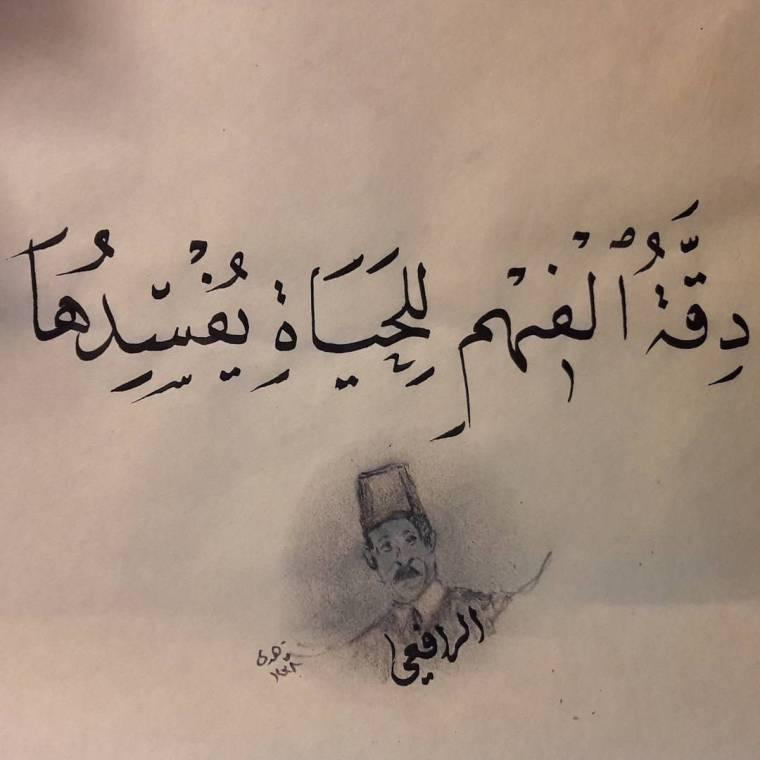 دِقَّةُ ٱلْفَهْمِ لِلْحَيَاةِ يُفْسِدُهَا
الرافعي